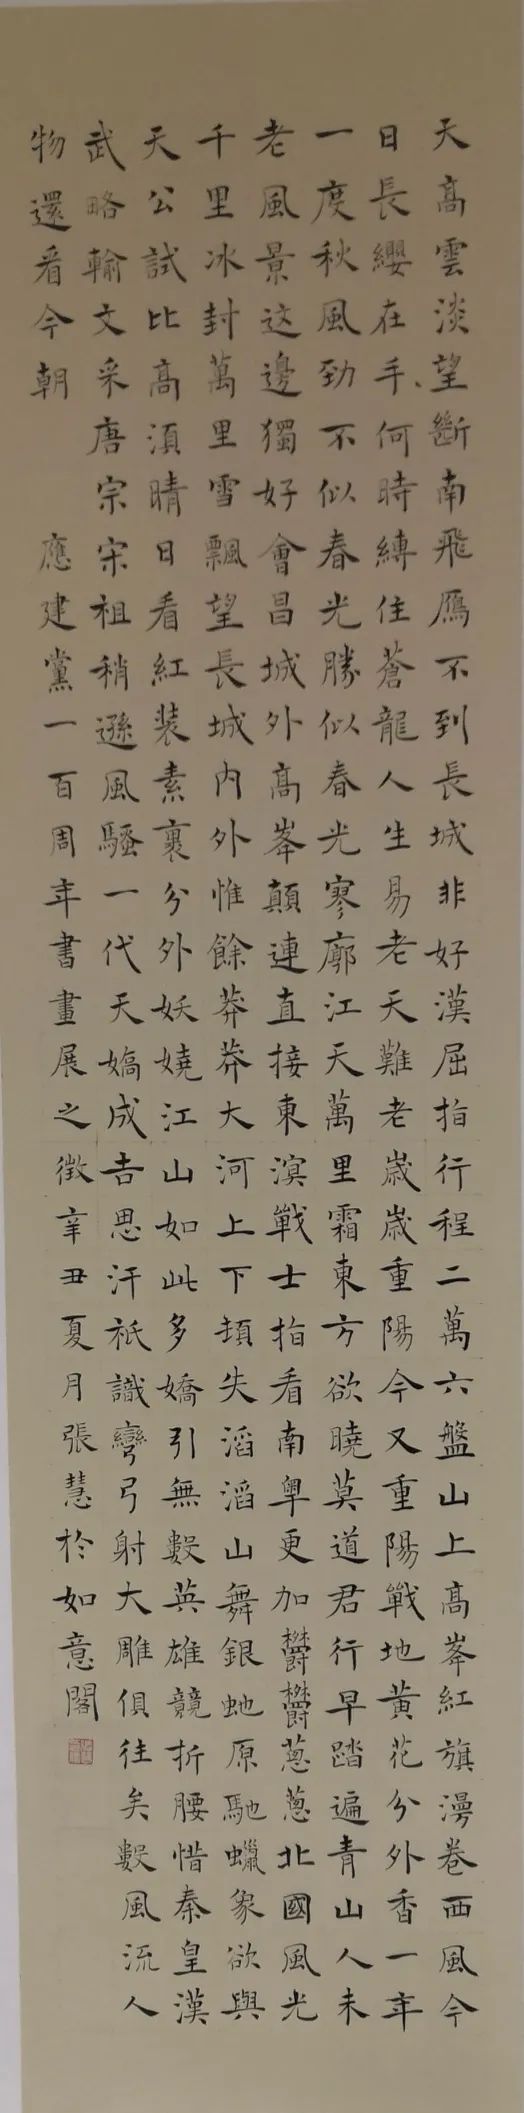 天高雲淡望斷南飛鴈不到長城非好漢屈指行程二萬六盤山上高峯紅旗漫卷西風今
日長纓在手何時縛住蒼龍人生易老天難老歲歲重陽今又重陽戰地黃花分外香一年
一度秋風勁不似春光勝似春光寥廓江天萬里霜東方欲曉莫道君行早踏遍青山人未
老風景这邊獨好會昌城外高峯顛連直接東溟戰士指看南粵更加鬱鬱蔥蔥北國風光
千里冰封萬里雪飄望長城內外惟餘莽莽大河上下頓失滔滔山舞銀虵原馳蠟象欲與
天公試比高湏晴日看紅裝素裹分外妖嬈江山如此多嬌引無數英雄競折腰惜秦皇漢
武略輸文采唐宗宋祖稍遜風騷一代天嬌成吉思汗衹識彎弓射大雕俱往矣數風流人
物還看今朝 應建黨一百周年書畫展之徵辛丑夏月張慧於如意閣